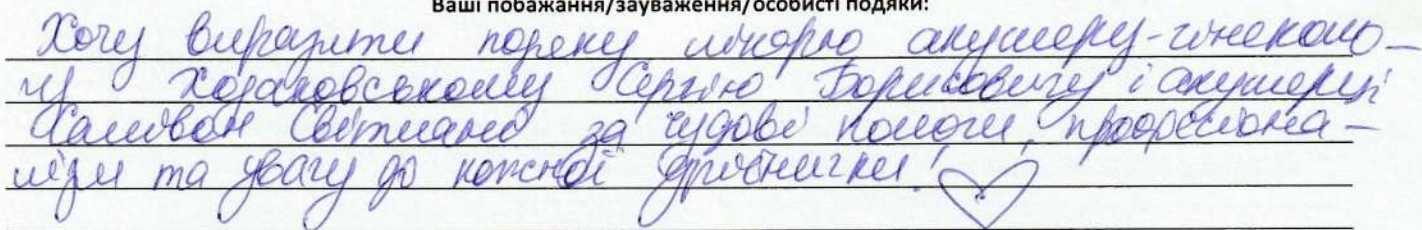 Ваші побажання/зауваження/особисті подяки:
Хочу виразити подяку лікарю акушеру-гінеколо-
гу Ходаковському Сергію Борисовичу і акушерці
Світлані за чудові пологи, професіона-
лізм та увагу до кожної дрібнички!